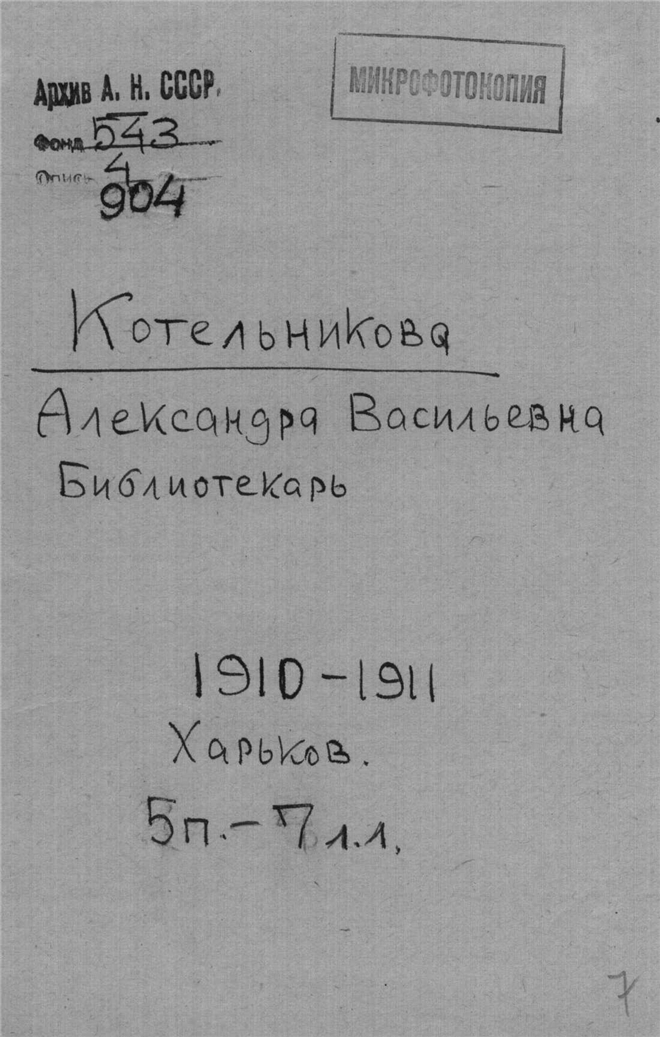 Архив А. Н. СССР.
МИКРОФОТОКОПИЯ
Фонд 543
Опись 4
904
Котельникова
Александра Васильевна
Библиотекарь
1910-1911
Харьков.
5п.-7л.л.
7